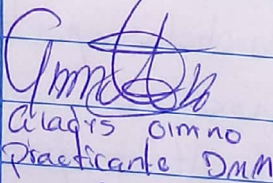 Gladys Olmno
Practicante DMM